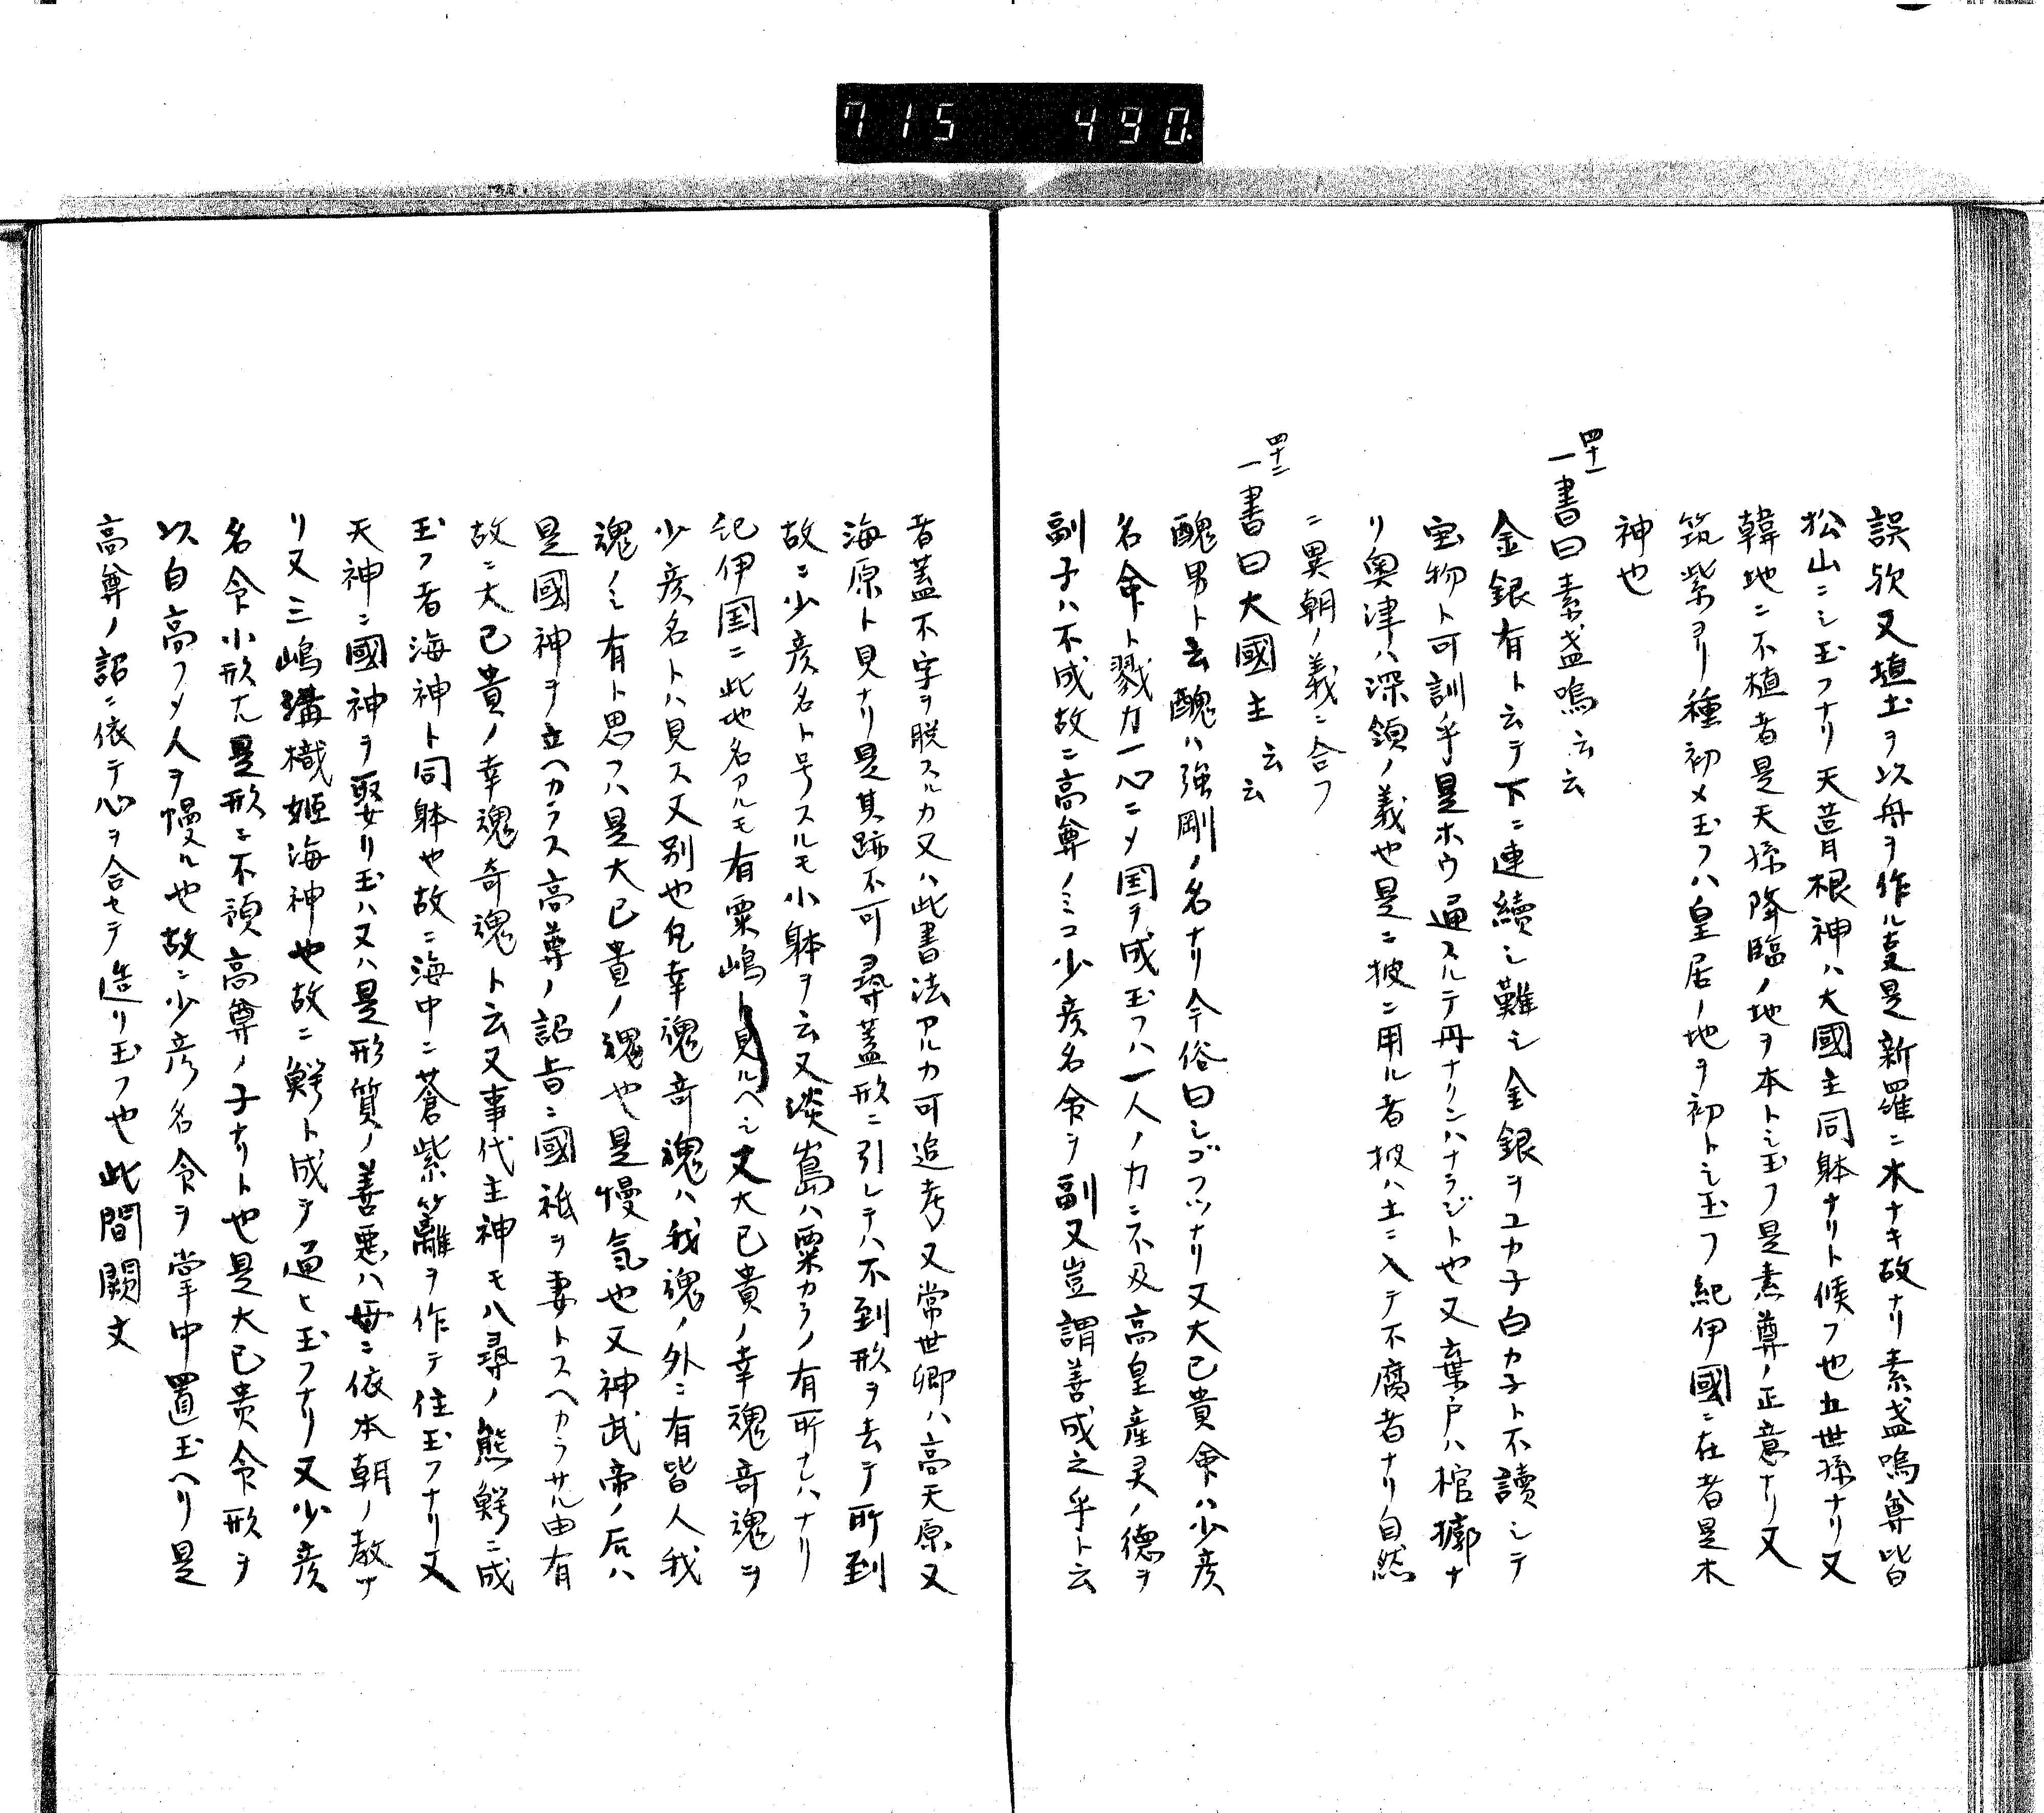 715 490
誤欤又埴土ヲ以舟ヲ作ル叓是新羅ニ木ナキ故ナリ素盞嗚尊皆
松山ニシ玉フナリ天菅根神ハ大國主同躰ナリト候フ也五世孫ナリ又
韓地ニ不植者是天孫降臨ノ地ヲ本トシ玉フ是素尊ノ正意ナリ又
筑紫ヨリ種初メ玉フハ皇居ノ地ヲ初トシ玉フ紀伊國ニ在者是木
神也
四十一
一書曰素盞嗚云云
金銀有ト云テ下ニ連續シ難シ金銀ヲコカ子白カ子ト不讀シテ
宝物ト可訓乎是ホウ通スルテ丹ナクンハナラジト也又棄戸ハ棺槨ナ
リ奥津ハ深領ノ義也是ニ披ニ用ル者披ハ土ニ入テ不腐者ナリ自然
ニ異朝ノ義ニ合フ
四十二
一書曰大國主云云
醜男ト云醜ハ強剛ノ名ナリ今俗曰シゴフツナリ又大已貴命ハ少彦
名命ト戮力一心ニメ国ヲ成玉フハ一人ノ力ニ不及高皇産灵ノ德ヲ
副子ハ不成故ニ高尊ノミコ少彦名命ヲ副又豈謂善成之乎ト云
者蓋不字ヲ脱スルカ又ハ此書法アルカ可追考又常世郷ハ高天原又
海原ト見ナリ是其跡不可尋蓋形ニ引レテハ不到形ヲ去テ所到
故ニ少彦名ト号スルモ小躰ヲ云又淡嶌ハ粟カラノ有所ナレハナリ
記伊国ニ此地名アルモ有粟嶋ト見ルヘシ又大已貴ノ幸魂奇魂ヲ
少彦名トハ見ス又別也凡幸魂奇魂ハ我魂ノ外ニ有皆人我
魂ノミ有ト思フハ是大已貴ノ魂也是慢気也又神武帝ノ后ハ
是國神ヲ立ヘカラス高尊ノ詔旨ニ國祗ヲ妻トスヘカラサル由有
故ニ大已貴ノ幸魂奇魂ト云又事代主神モ八尋ノ熊鰐ニ成
玉フ者海神ト同躰也故ニ海中ニ蒼紫籬ヲ作テ住玉フナリ又
天神ニ國神ヲ娶リ玉ハ又ハ是形質ノ善悪ハ母ニ依本朝ノ教ナ
リ又三嶋溝樴姫海神也故ニ鰐ト成テ通ヒ玉フナリ又少彦
名命小形尢是形ヲ不預高尊ノ子ナリト也是大已貴命形ヲ
以自高フメ人ヲ慢ル也故ニ少彦名命ヲ掌中置玉ヘリ是
高尊ノ詔ニ依テ心ヲ合セテ造リ玉フ也此間闕文